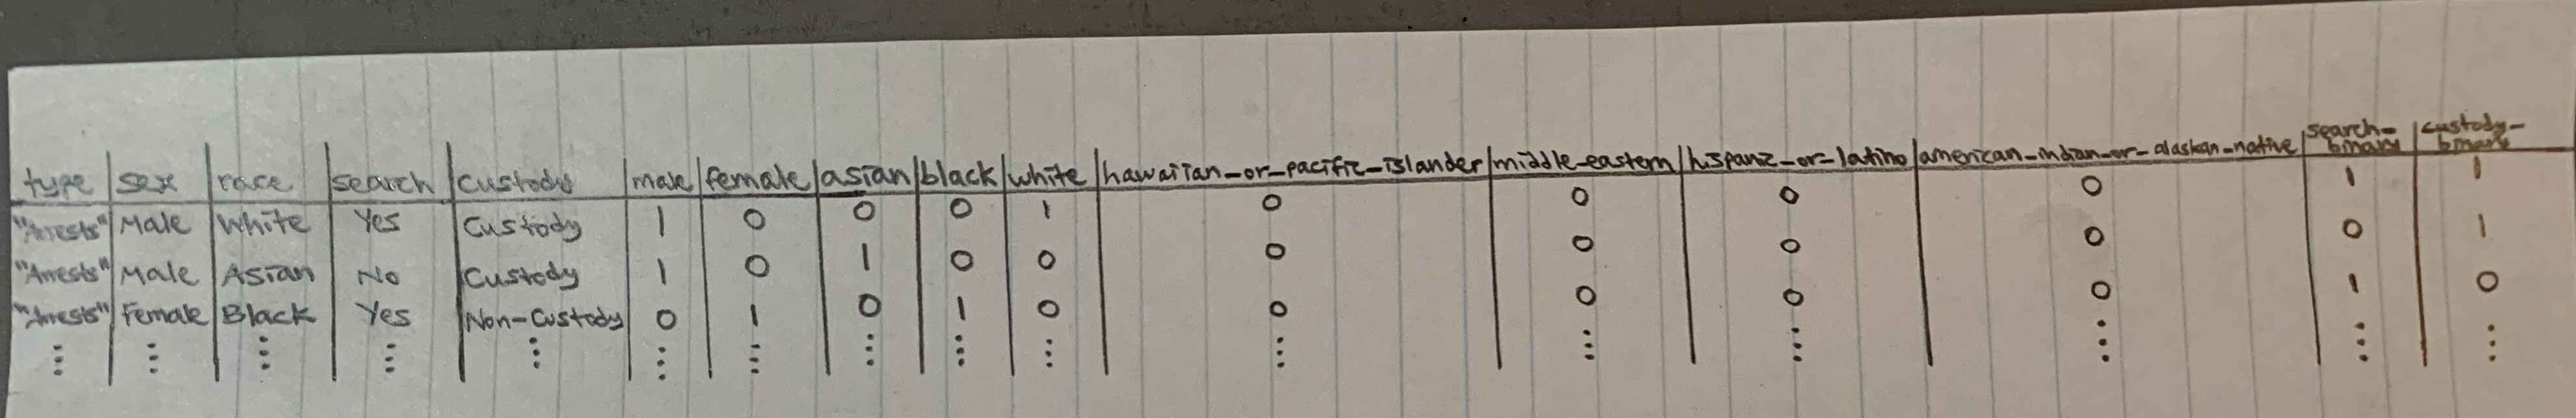 type | sex | race | search | custody | male | female | asian | black | white | hawaiian_or_pacific_islander | middle_eastern | hispanic_or_latino | american_indian_or_alaskan_native | search_binary | custody_binary
"Arrests" | Male | White | Yes | Custody | 1 | 0 | 0 | 0 | 1 | 0 | 0 | 0 | 0 | 1 | 1
"Arrests" | Male | Asian | No | Custody | 1 | 0 | 1 | 0 | 0 | 0 | 0 | 0 | 0 | 0 | 1
"Arrests" | Female | Black | Yes | Non-Custody | 0 | 1 | 0 | 1 | 0 | 0 | 0 | 0 | 0 | 1 | 0
⋮ | ⋮ | ⋮ | ⋮ | ⋮ | ⋮ | ⋮ | ⋮ | ⋮ | ⋮ | ⋮ | ⋮ | ⋮ | ⋮ | ⋮ | ⋮